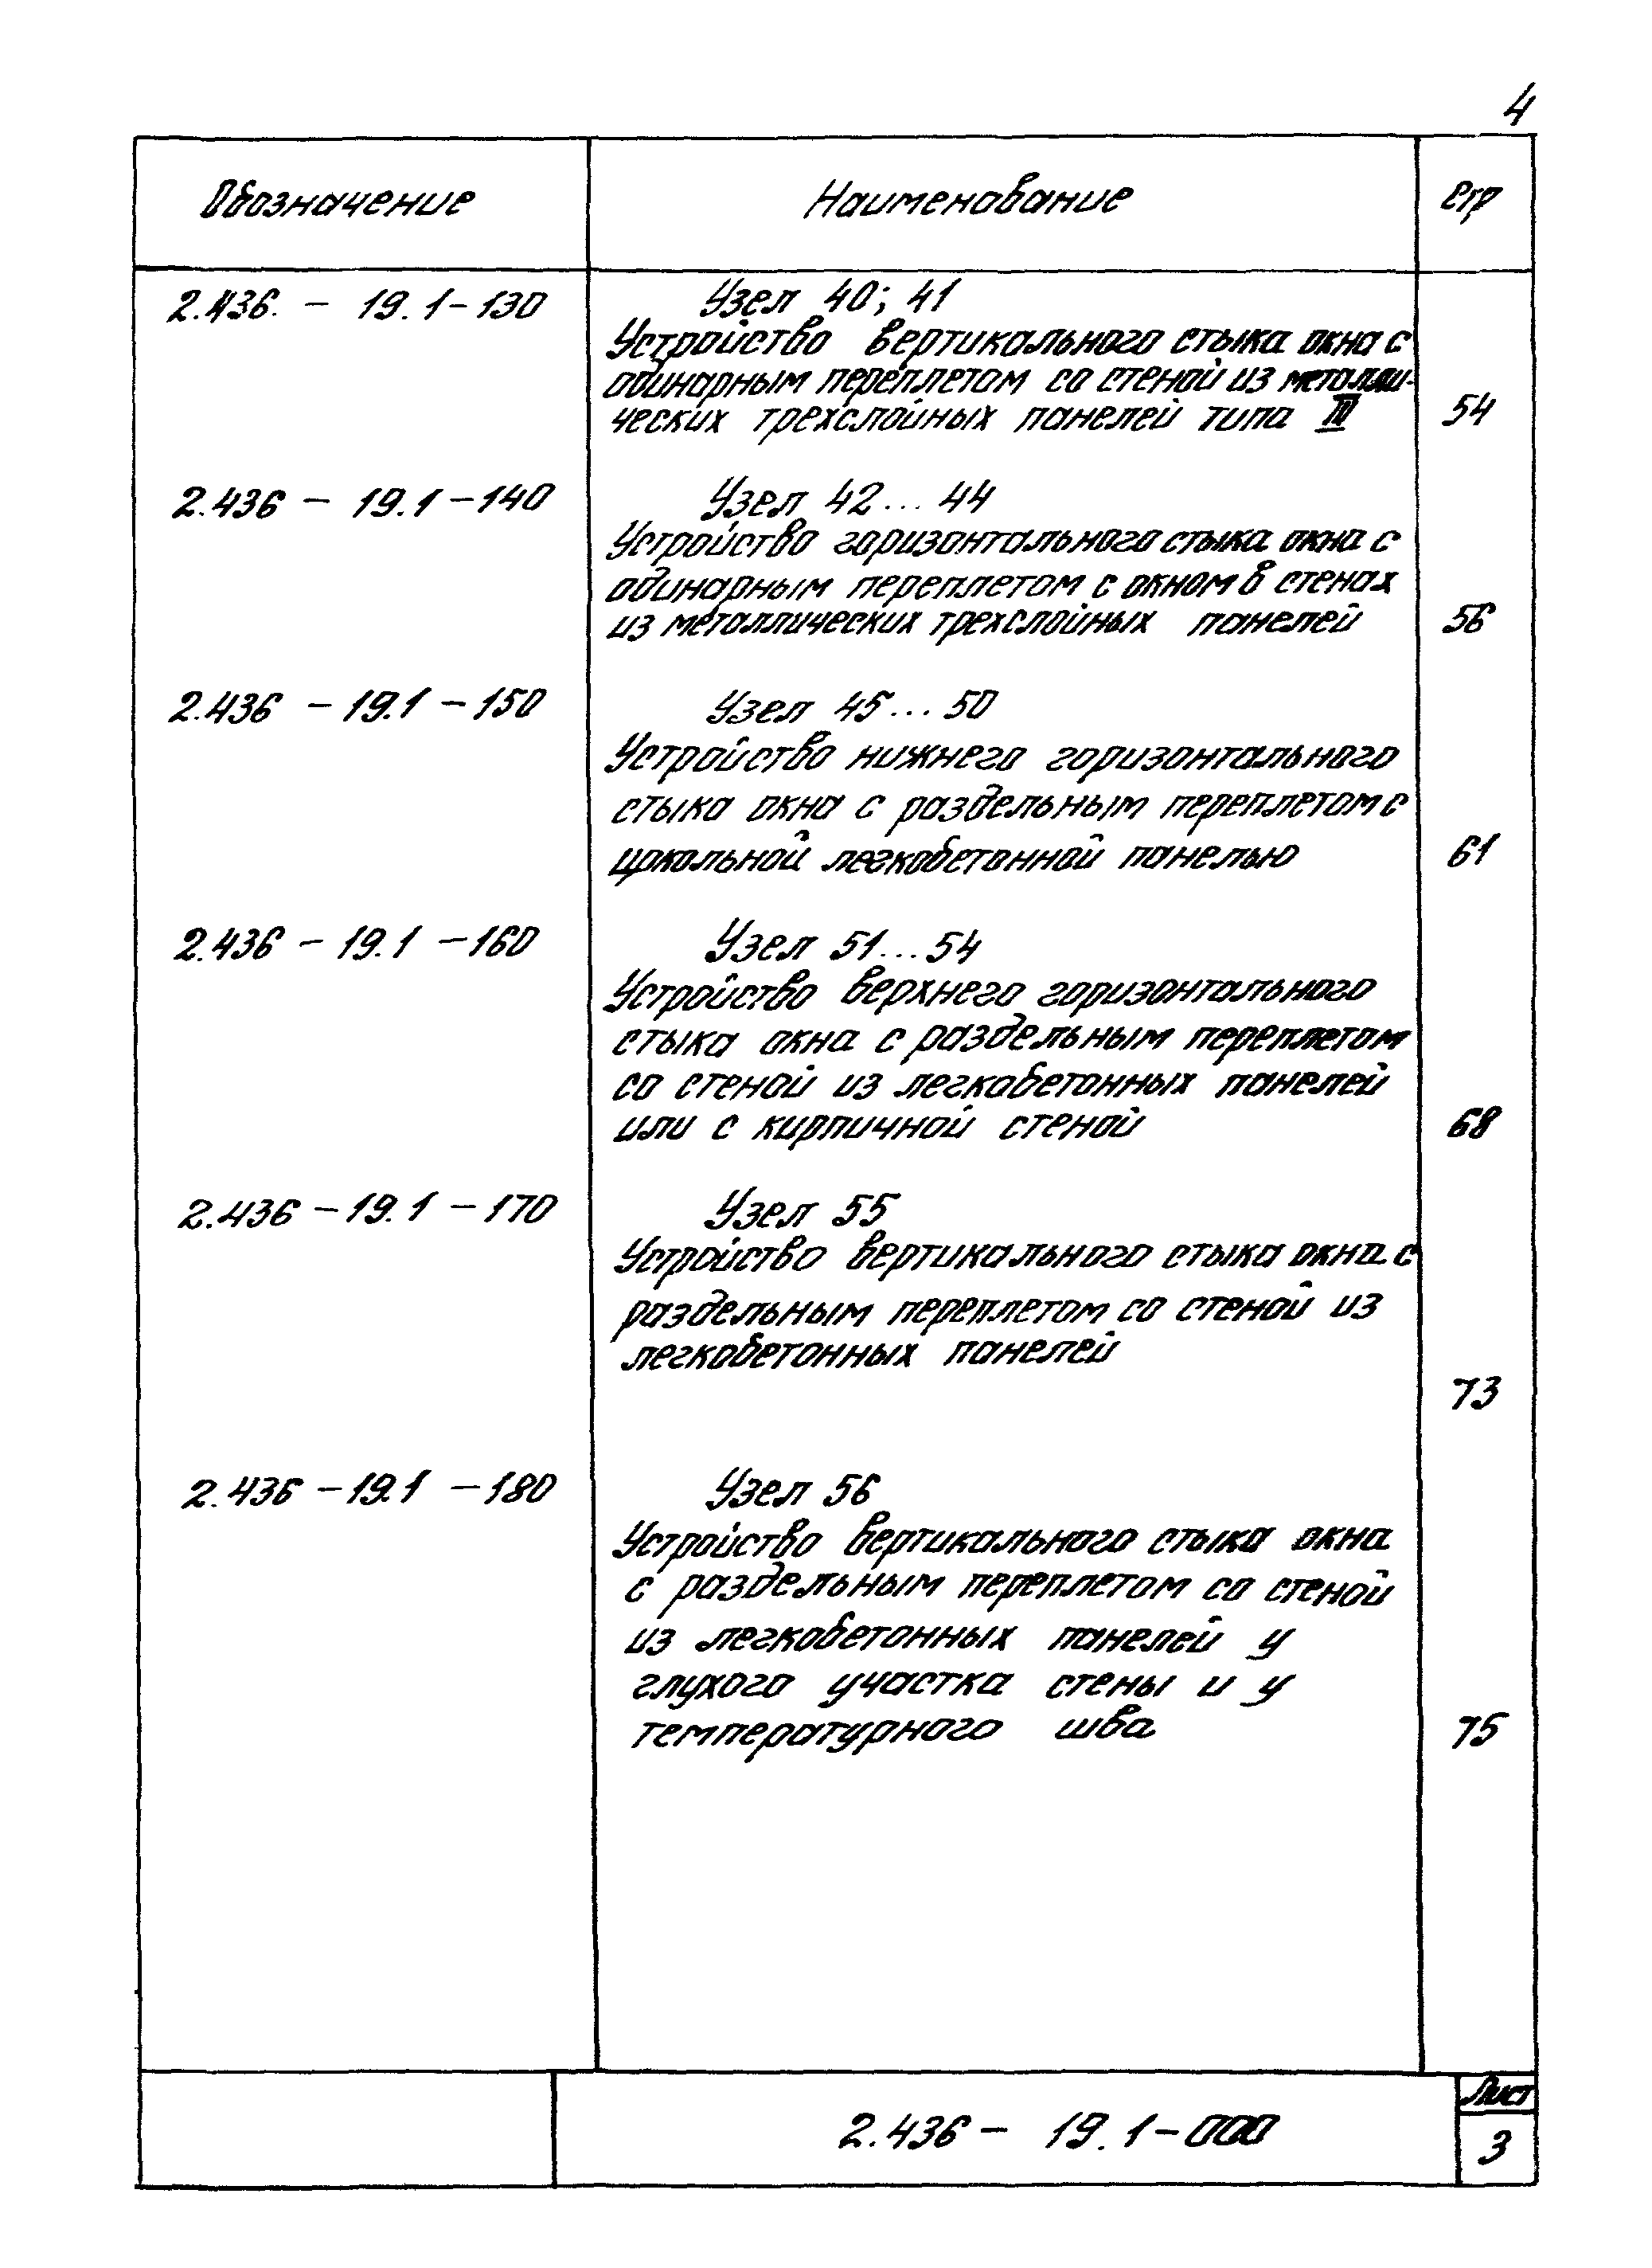 4
Обозначение Наименование Стр
2.436. - 19.1-130 Узел 40; 41
Устройство вертикального стыка окна с
одинарным переплетом со стеной из металли-
ческих трехслойных панелей типа 54
2.436 - 19.1-140 Узел 42...44
Устройство горизонтального стыка окна с
одинарным переплетом с окном в стенах
из металлических трехслойных панелей 56
2.436 - 19.1 - 150 Узел 45...50
Устройство нижнего горизонтального
стыка окна с раздельным переплетом с
цокольной легкобетонной панелью 61
2.436 - 19.1 - 160 Узел 51...54
Устройство верхнего горизонтального
стыка окна с раздельным переплетом
со стеной из легкобетонных панелей
или с кирпичной стеной 68
2.436 - 19.1 - 170 Узел 55
Устройство вертикального стыка окна с
раздельным переплетом со стеной из
легкобетонных панелей
73
2.436 - 19.1 - 180 Узел 56
Устройство вертикального стыка окна
с раздельным переплетом со стеной
из легкобетонных панелей у
глухого участка стены и у
температурного шва 75
Лист
2.436 - 19.1-000 3